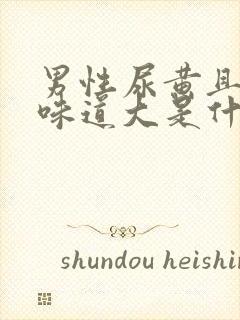 男性尿黄且
味道大是什
shundou heishin